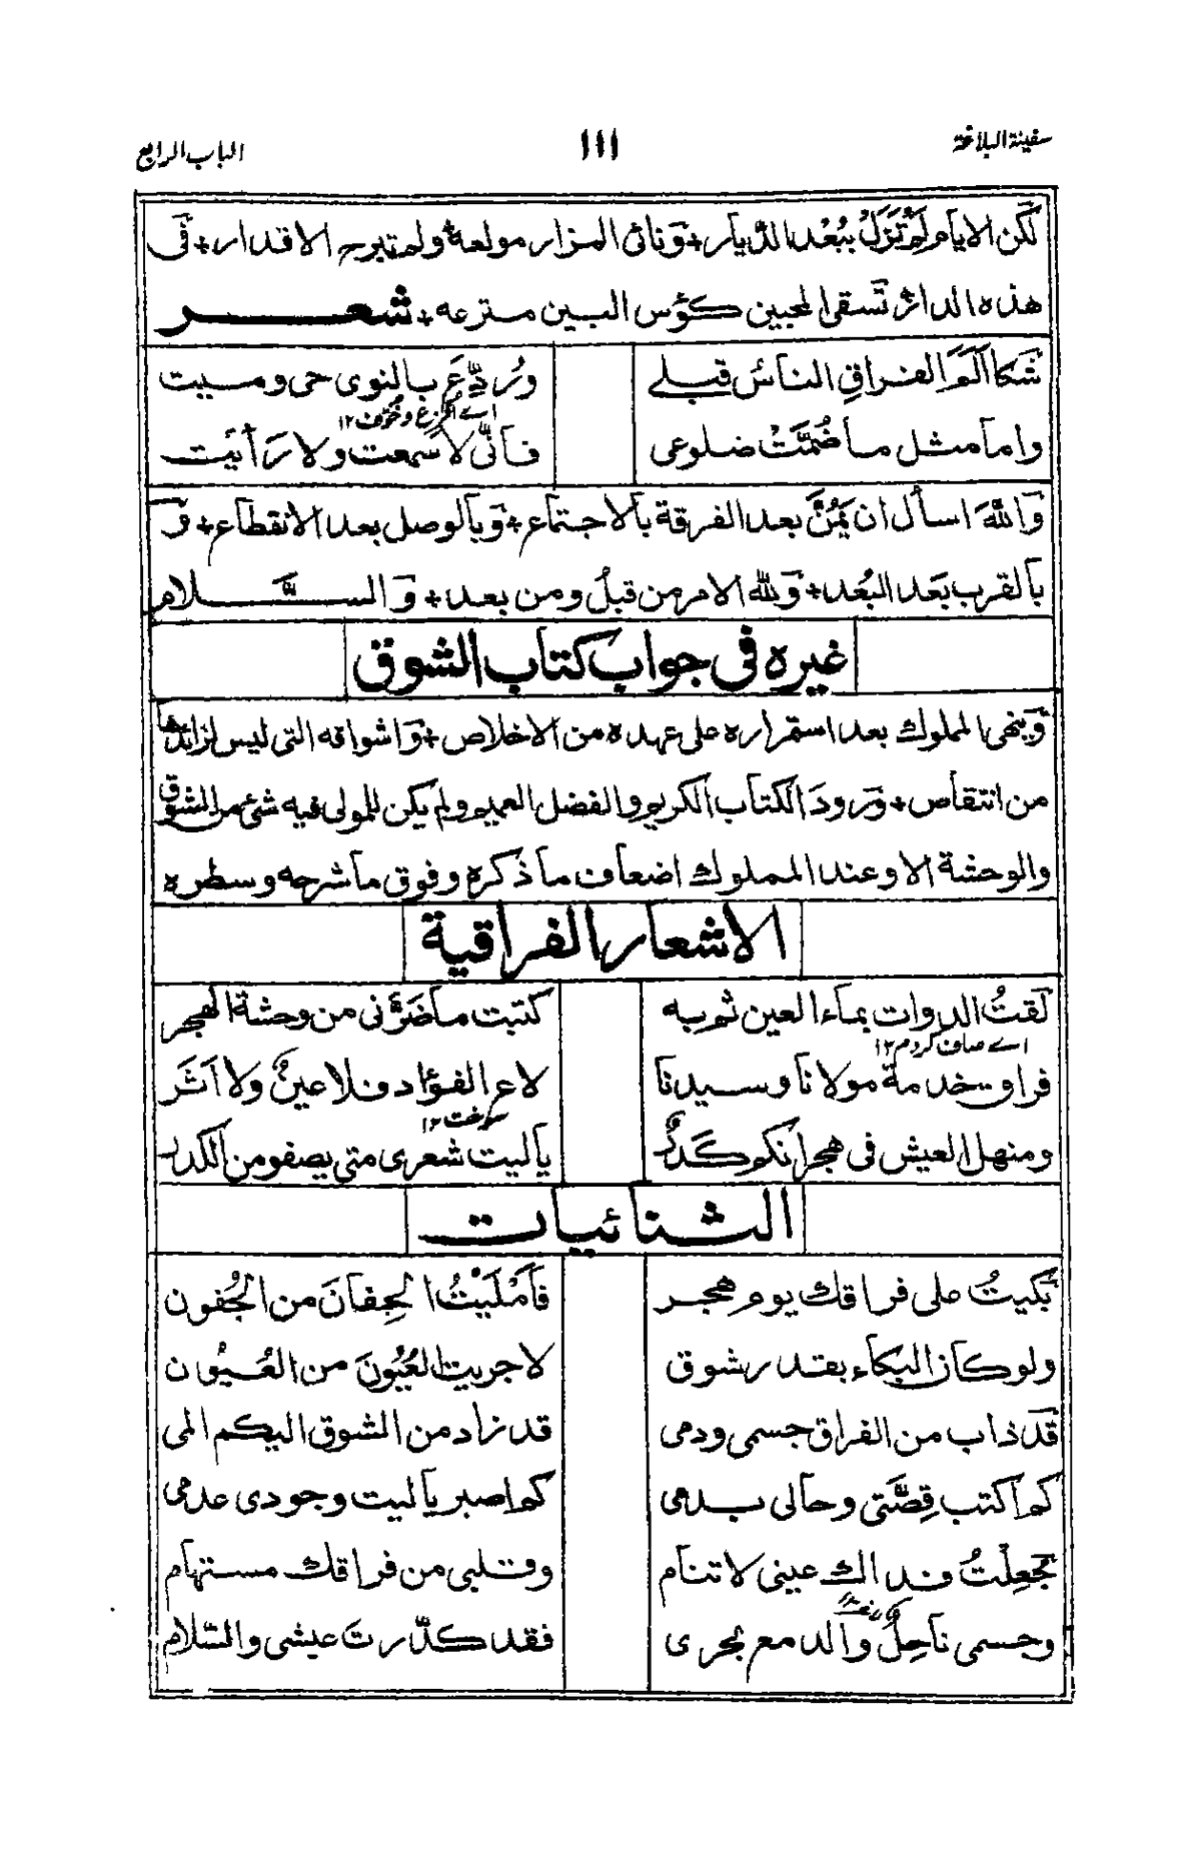 سفينة البلاغة
١١١
الباب الرابع
لكن الايام لم تَزَلْ ببُعْد الدّيار + وَنائى المزار مولعة ولم تبرح الاقدار + فى
هذه الدار تسقى المحبين كؤس البين مترعه + شعر
شكا اَلَمَ الفراقِ الناسُ قبلے
ورُدِّعَ بالنوى حى وميت
واما مثل ما ضُمَّتْ ضلوعى
فانّى لا سمعت ولا رَأئيت
وَاللّٰهَ اسأل ان يَمُنَّ بعد الفرقة بالاجتماع + وَبالوصل بعد الانقطاع + وَ
بالقرب بَعَد البُعد + وَلله الامر من قبلُ ومن بعد + وَ السَّلام
غيره فى جواب كتاب الشوق
وَينهى المملوك بعد استقراره على عهده من الاخلاص + وَاشواقه التى ليس لزائدها
من انتقاص + وَرودَ الكتاب الكريم والفضل العميم ولم يكن للمولى فيه شئ من الشوق
والوحشة الا وعند المملوك اضعاف ما ذكره وفوق ما شرحه وسطره
الاشعار الفراقية
لَقتُ الدوات بماء العين ثم به
كتبت ما ضَرَّنى من وحشة الهجر
اے صاف كردم ١٢
فراق خدمة مولانا وسيدنا
لاعج الفؤاد فلا عينٌ ولا اَثَر
سوخت ١٢
ومنهل العيش فى هجرانكم كَدَرٌ
ياليت شعرى متى يصفو من الكدر
الثنائيات
بَكيتُ على فراقك يوم هجر
فَاَمْلَيْتُ الجِفانَ من الجُفون
ولو كان البكاء بقدر شوق
لاجريت العُيُونَ من العُيُون
قَد ذاب من الفراق جسمى ودمى
قد زاد من الشوق اليكم المى
كم اكتب قِصَّتى وحالى بدمى
كم اصبر ياليت وجودى عدمى
جُعِلْتُ فداك عينى لا تنام
وقلبى من فراقك مستهام
وجسمى ناحِلٌ والدمع يجرى
فقد كدّرتَ عيشى والسّلام